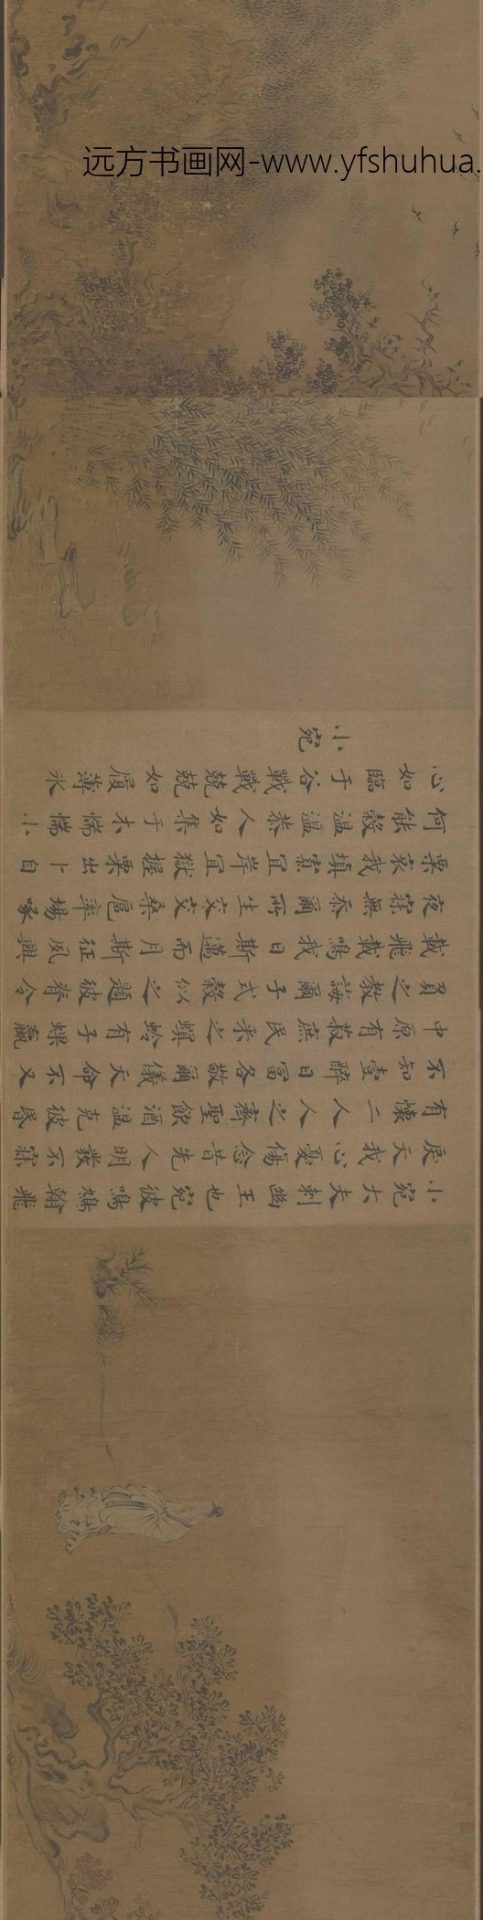 远方书画网-www.yfshuhua.
小宛大夫刺幽王也宛彼鳴鳩翰飛
戾天我心憂傷念昔先人明發不寐
有懷二人人之齊聖飲酒溫克彼昏
不知壹醉日富各敬爾儀天命不又
中原有菽庶民采之螟蛉有子蜾蠃
負之教誨爾子式穀似之題彼脊令
載飛載鳴我日斯邁而月斯征夙興
夜寐無忝爾所生交交桑扈率場啄
粟哀我填寡宜岸宜獄握粟出卜自
何能穀溫溫恭人如集于木惴惴小
心如臨于谷戰戰兢兢如履薄氷
小宛